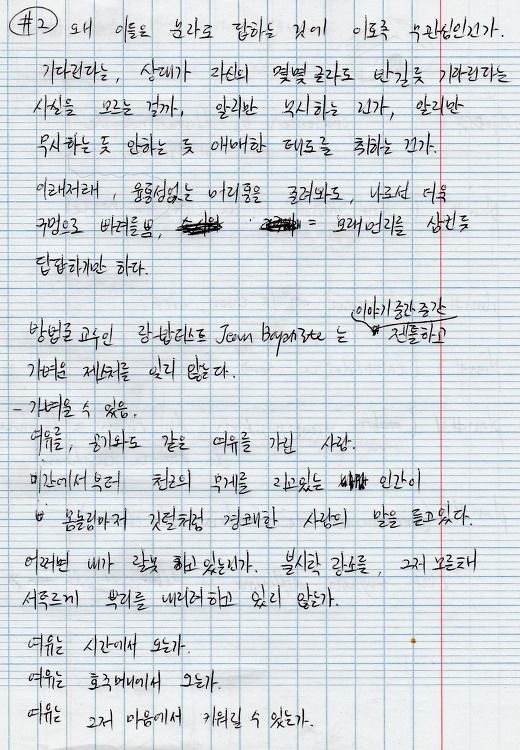 #2) 왜 이들은 문자로 답하는 것에 이토록 무관심인건가.
기다린다는, 상대가 자신의 몇몇 글자를 반길듯 기다린다는
사실을 모르는 걸까, 알지만 무시하는 건가, 알지만
무시하는 듯 안하는 듯 애매한 태도를 취하는 건가.
이래저래, 융통성없는 머리통을 굴려봐도, 나로선 더욱
구멍으로 빠져들 뿐, = 모래먼지를 삼킨듯
답답하기만 하다.
이야기 중간중간
방법론 교수인 장밥티스트 Jean Baptiste 는 젠틀하고
가벼운 제스처를 잊지 않는다.
- 가벼울 수 있음.
여유를, 공기와도 같은 여유를 가진 사람.
미간에서부터 천근의 무게를 지고있는 인간이
몸놀림마저 깃털처럼 경쾌한 사람의 말을 듣고있다.
어쩌면 내가 잘못 하고 있는건가. 불시착 장소를, 그저 모른채
서투르게 뿌리를 내리려하고 있지 않는가.
여유는 시간에서 오는가.
여유는 호주머니에서 오는가.
여유는 그저 마음에서 키워질 수 있는가.